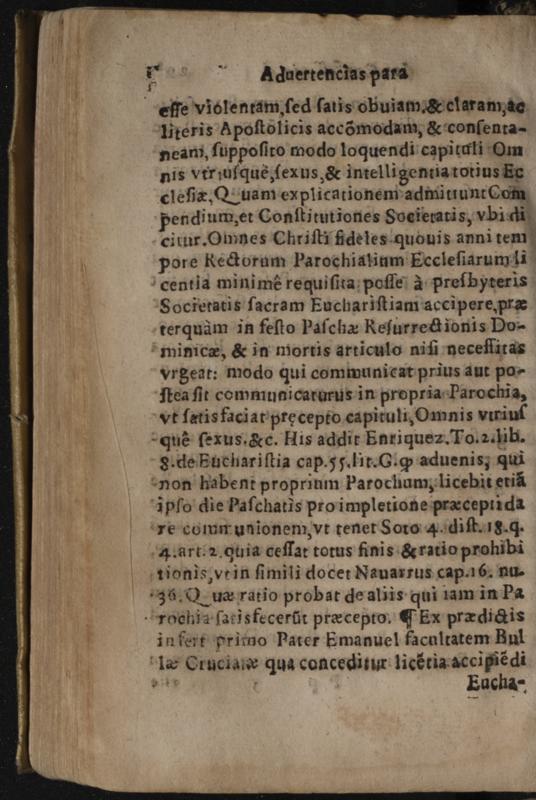 Aduertencias para
esse violentam, sed satis obuiam, & claram, ac
literis Apostolicis accõmodam, & consenta-
neam, supposito modo loquendi capituli Om
nis vtriusquê, sexus, & intelligentia totius Ec
clesiæ, Quam explicationem admittunt Com
pendium, et Constitutiones Societatis, vbi di
citur. Omnes Christi fideles quouis anni tem
pore Rectorum Parochialium Ecclesiarum li
centia minimê requisita posse à presbyteris
Societatis sacram Eucharistiam accipere, præ
terquàm in festo Paschæ Resurrectionis Do-
minicæ, & in mortis articulo nisi necessitas
vrgeat: modo qui communicat prius aut po-
stea sit communicaturus in propria Parochia,
vt satisfaciat pręcepto capituli, Omnis vtrius
quê sexus. &c. His addit Enriquez. To. 2. lib.
8. de Eucharistia cap. 55. lit. G. ꝙ aduenis, qui
non habent proprium Parochum, licebit etiã
ipso die Paschatis pro impletione præcepti da
re communionem, vt tenet Soto 4. dist. 18. q.
4. art. 2. quia cessat totus finis & ratio prohibi
tionis, vt in simili docet Nauarrus cap. 16. nu.
36. Quæ ratio probat de aliis qui iam in Pa
rochia satisfecerũt præcepto. ¶ Ex prædictis
infert primo Pater Emanuel facultatem Bul
læ Cruciatæ qua conceditur licẽtia accipiẽdi
Eucha-